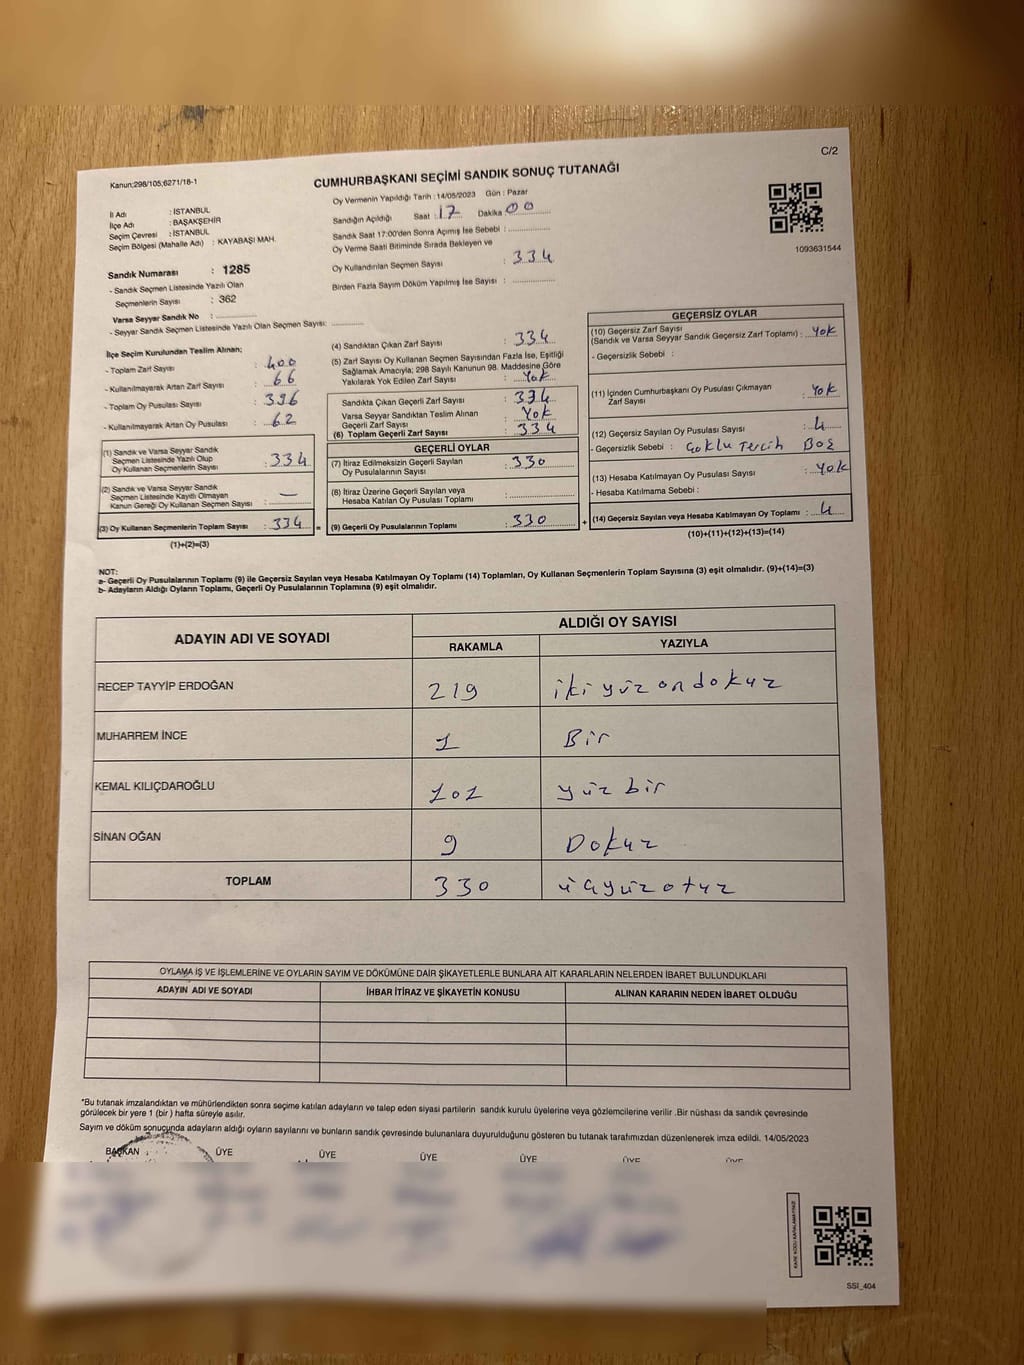 C/2
Kanun:298/105;6271/18-1
CUMHURBAŞKANI SEÇİMİ SANDIK SONUÇ TUTANAĞI
İl Adı : İSTANBUL
İlçe Adı : BAŞAKŞEHİR
Seçim Çevresi : İSTANBUL
Seçim Bölgesi (Mahalle Adı) : KAYABAŞI MAH.
Sandık Numarası : 1285
- Sandık Seçmen Listesinde Yazılı Olan
Seçmenlerin Sayısı : 362
Varsa Seyyar Sandık No : ..............
- Seyyar Sandık Seçmen Listesinde Yazılı Olan Seçmen Sayısı: ..............
Oy Vermenin Yapıldığı Tarih : 14/05/2023 Gün : Pazar
Sandığın Açıldığı Saat : 17 Dakika 00
Sandık Saat 17:00'den Sonra Açımış İse Sebebi : ..............
Oy Verme Saati Bitiminde Sırada Bekleyen ve
Oy Kullandırılan Seçmen Sayısı : 334
Birden Fazla Sayım Döküm Yapılmış İse Sayısı : ..............
1093631544
İlçe Seçim Kurulundan Teslim Alınan;
- Toplam Zarf Sayısı : 400
- Kullanılmayarak Artan Zarf Sayısı : 66
- Toplam Oy Pusulası Sayısı : 396
- Kullanılmayarak Artan Oy Pusulası : 62
(1) Sandık ve Varsa Seyyar Sandık
Seçmen Listesinde Yazılı Olup
Oy Kullanan Seçmenlerin Sayısı : 334
(2) Sandık ve Varsa Seyyar Sandık
Seçmen Listesinde Kayıtlı Olmayan
Kanun Gereği Oy Kullanan Seçmen Sayısı : —
(3) Oy Kullanan Seçmenlerin Toplam Sayısı : 334 =
(1)+(2)=(3)
(4) Sandıktan Çıkan Zarf Sayısı : 334
(5) Zarf Sayısı Oy Kullanan Seçmen Sayısından Fazla İse, Eşitliği
Sağlamak Amacıyla; 298 Sayılı Kanunun 98. Maddesine Göre
Yakılarak Yok Edilen Zarf Sayısı : Yok
Sandıkta Çıkan Geçerli Zarf Sayısı : 334
Varsa Seyyar Sandıktan Teslim Alınan
Geçerli Zarf Sayısı : Yok
(6) Toplam Geçerli Zarf Sayısı : 334
GEÇERLİ OYLAR
(7) İtiraz Edilmeksizin Geçerli Sayılan
Oy Pusulalarının Sayısı : 330
(8) İtiraz Üzerine Geçerli Sayılan veya
Hesaba Katılan Oy Pusulası Toplamı : ..............
(9) Geçerli Oy Pusulalarının Toplamı : 330 +
GEÇERSİZ OYLAR
(10) Geçersiz Zarf Sayısı
(Sandık ve Varsa Seyyar Sandık Geçersiz Zarf Toplamı) : Yok
- Geçersizlik Sebebi :
(11) İçinden Cumhurbaşkanı Oy Pusulası Çıkmayan
Zarf Sayısı : Yok
(12) Geçersiz Sayılan Oy Pusulası Sayısı : 4
- Geçersizlik Sebebi : Çoklu Tercih Boş
(13) Hesaba Katılmayan Oy Pusulası Sayısı : Yok
- Hesaba Katılmama Sebebi :
(14) Geçersiz Sayılan veya Hesaba Katılmayan Oy Toplamı : 4
(10)+(11)+(12)+(13)=(14)
NOT:
a- Geçerli Oy Pusulalarının Toplamı (9) ile Geçersiz Sayılan veya Hesaba Katılmayan Oy Toplamı (14) Toplamları, Oy Kullanan Seçmenlerin Toplam Sayısına (3) eşit olmalıdır. (9)+(14)=(3)
b- Adayların Aldığı Oyların Toplamı, Geçerli Oy Pusulalarının Toplamına (9) eşit olmalıdır.
ADAYIN ADI VE SOYADI ALDIĞI OY SAYISI
RAKAMLA YAZIYLA
RECEP TAYYİP ERDOĞAN 219 iki yüz on dokuz
MUHARREM İNCE 1 Bir
KEMAL KILIÇDAROĞLU 101 yüz bir
SİNAN OĞAN 9 Dokuz
TOPLAM 330 üçyüzotuz
OYLAMA İŞ VE İŞLEMLERİNE VE OYLARIN SAYIM VE DÖKÜMÜNE DAİR ŞİKAYETLERLE BUNLARA AİT KARARLARIN NELERDEN İBARET BULUNDUKLARI
ADAYIN ADI VE SOYADI İHBAR İTİRAZ VE ŞİKAYETİN KONUSU ALINAN KARARIN NEDEN İBARET OLDUĞU
*Bu tutanak imzalandıktan ve mühürlendikten sonra seçime katılan adayların ve talep eden siyasi partilerin sandık kurulu üyelerine veya gözlemcilerine verilir .Bir nüshası da sandık çevresinde
görülecek bir yere 1 (bir ) hafta süreyle asılır.
Sayım ve döküm sonucunda adayların aldığı oyların sayılarını ve bunların sandık çevresinde bulunanlara duyurulduğunu gösteren bu tutanak tarafımızdan düzenlenerek imza edildi. 14/05/2023
BAŞKAN ÜYE ÜYE ÜYE ÜYE ÜYE ÜYE
KARE KODU KARALAMAYINIZ!
SSI_404